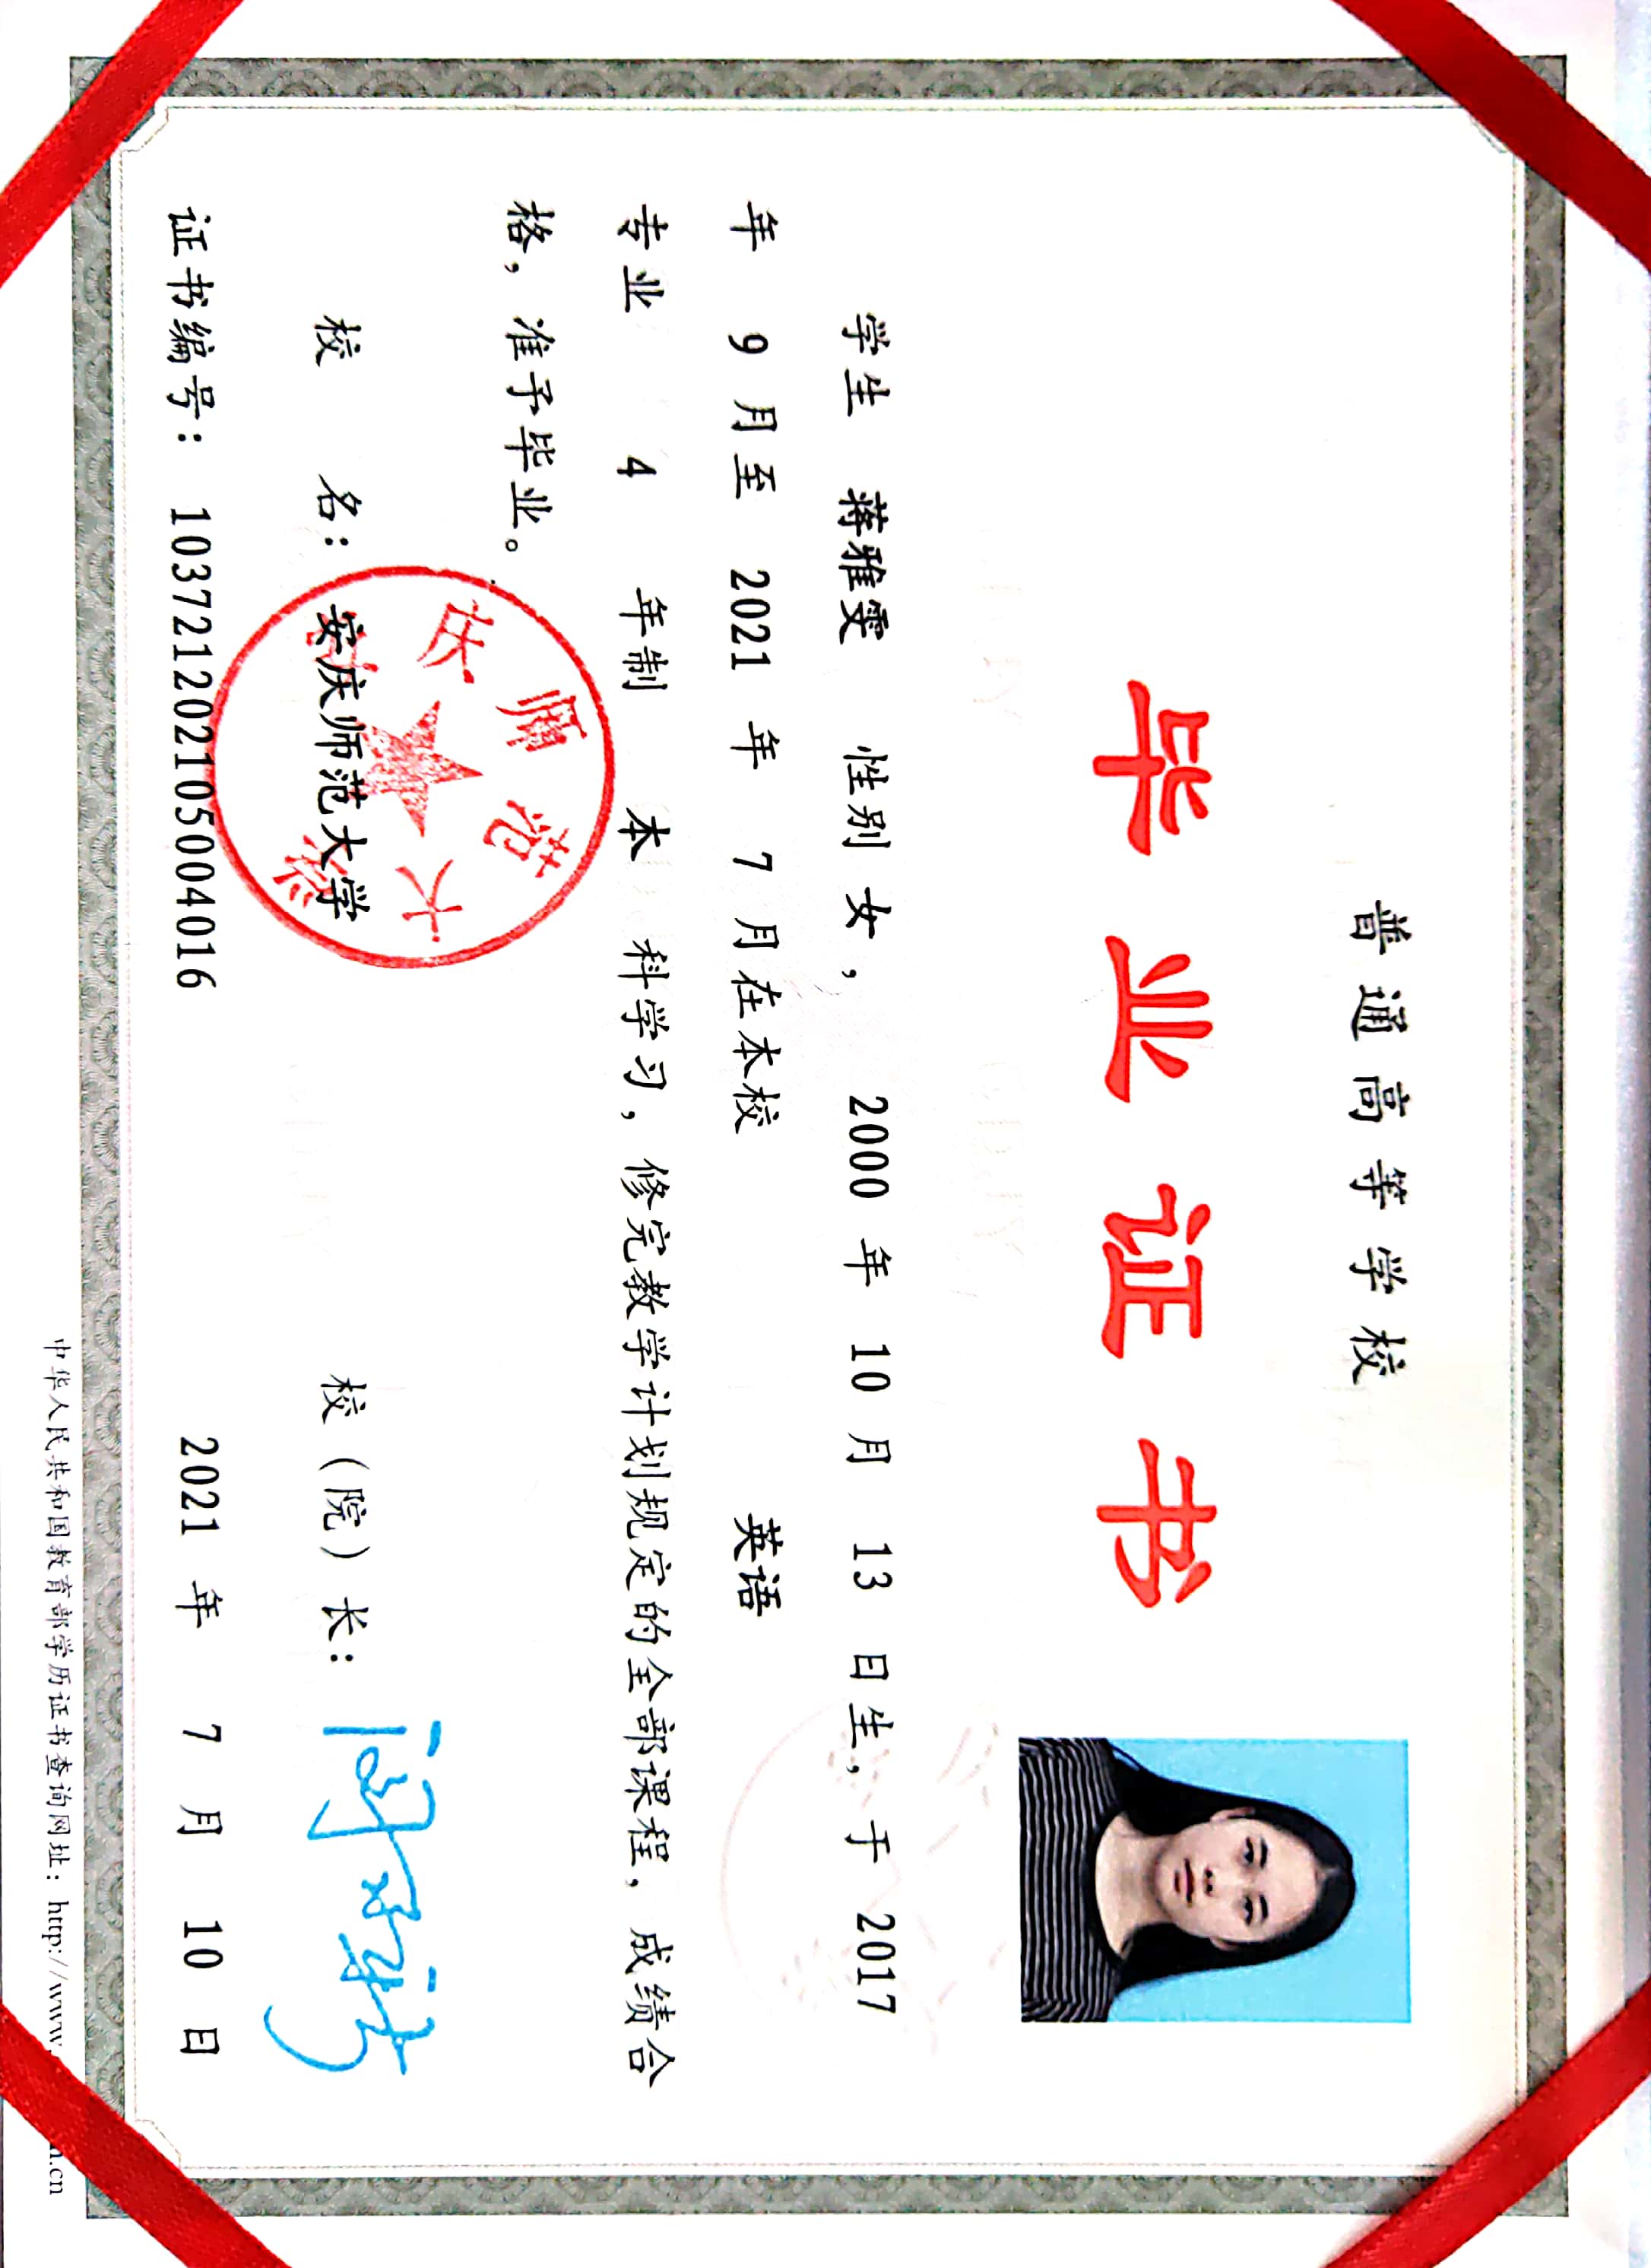 普通高等学校
毕业证书
学生 蒋雅雯 性别 女， 2000 年 10 月 13 日生，于 2017
年 9 月至 2021 年 7 月在本校 英语
专业 4 年制 本 科学习，修完教学计划规定的全部课程，成绩合
格，准予毕业。
校 名：安庆师范大学 校（院）长：
安庆师范大学
证书编号：103721202105004016 2021 年 7 月 10 日
中华人民共和国教育部学历证书查询网址：http://www.